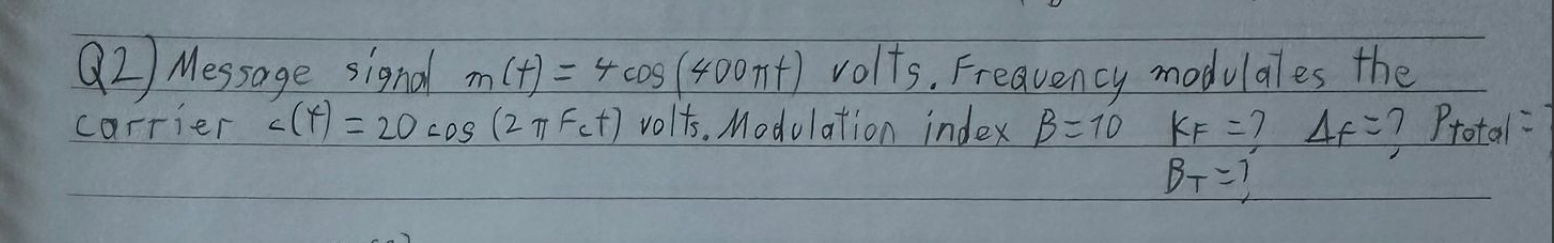 Q2) Message signal m(t) = 4 cos (400πt) volts. Frequency modulates the
carrier c(t) = 20 cos (2πFct) volts. Modulation index B = 10 KF = ? Δf = ? Ptotal =
BT = ?